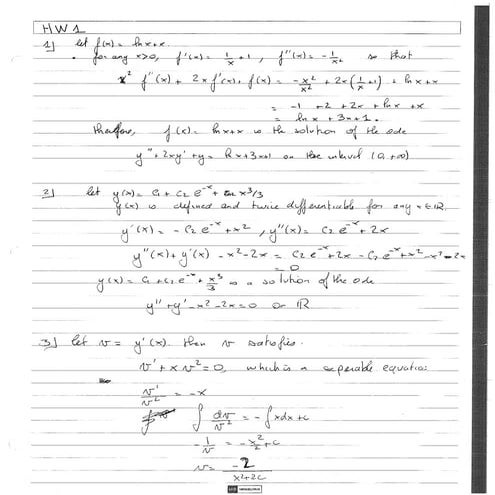 HW1
1) let f(x) = lnx+x.
. for any x>0, f'(x) = 1/x +1, f''(x) = -1/x² so that
x² f''(x) + 2x f'(x) + f(x) = -x²/x² + 2x(1/x +1) + lnx+x
= -1 +2 +2x + lnx +x
= lnx + 3x+1.
Therefore, f(x) = lnx+x is the solution of the ode
y'' +2xy' +y = lnx+3x+1 on the interval (0,+∞)
2) let y(x) = C1 + C2 e^-x + x³/3
y(x) is defined and twice differentiable for any x∈IR.
y'(x) = -C2 e^-x +x², y''(x) = C2 e^-x + 2x
y''(x) + y'(x) - x²-2x = C2 e^-x +2x - C2 e^-x +x² -x² -2x
= 0
y(x) = C1 + C2 e^-x + x³/3 is a solution of the ode
y'' +y' -x² -2x=0 on IR
3) let v = y'(x). then v satisfies.
v' + x v² =0, which is a seperable equation:
v'/v² = -x
∫ dv/v² = -∫xdx+c
-1/v = -x²/2 +c
v= -2/x²+2C